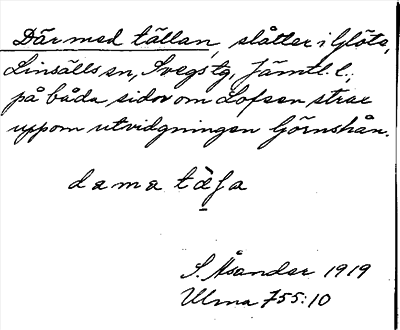 Där med tällan, slåtter i Glöte,
Linsälls sn, Svegs tg, Jämtl. l.;
på båda sidor om Lofsen strax
uppom utvidgningen Görnshån.
dama täſa
S. Åsander 1919
Ulma 755:10